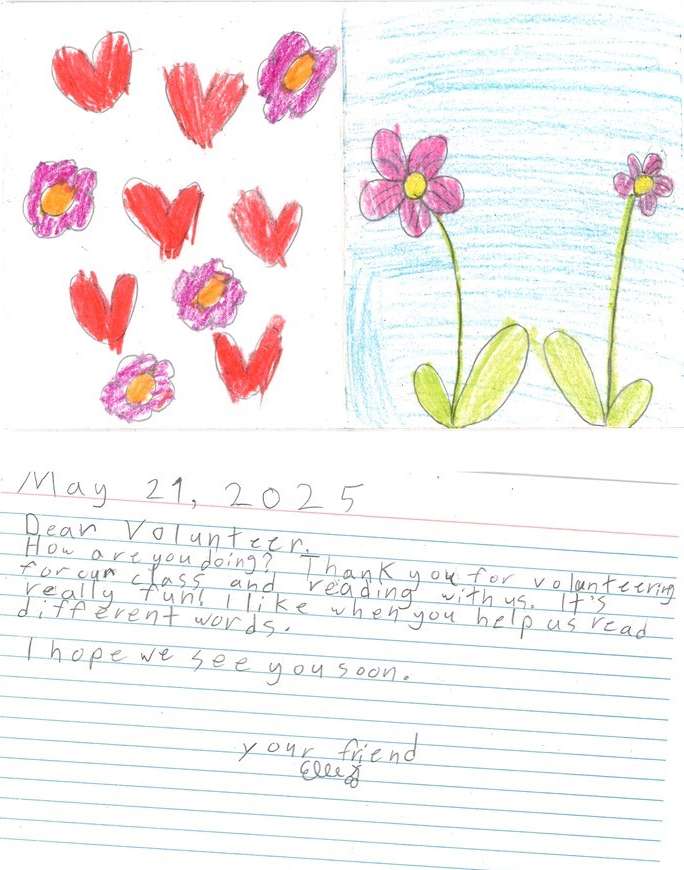 May 21, 2025
Dear Volunteer.
How are you doing? Thank you for volunteering
for our class and reading with us. It's
really fun! I like when you help us read
different words.
I hope we see you soon.
your friend
Elle